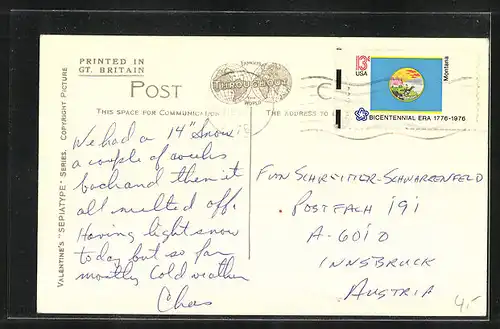 PRINTED IN
GT. BRITAIN
POST
THROUGHOUT
WORLD
THIS SPACE FOR COMMUNICATION
THE ADDRESS TO
VALENTINE'S "SEPIATYPE" SERIES. COPYRIGHT PICTURE
13c
USA
Montana
BICENTENNIAL ERA 1776-1976
We had a 14" snow
a couple of weeks
back and then it
all melted off.
Having light snow
today but so far
mostly cold weather
Chas
SCHREITTER-SCHWARZENFELD
POSTFACH 191
A-6010
INNSBRUCK
AUSTRIA
4,-